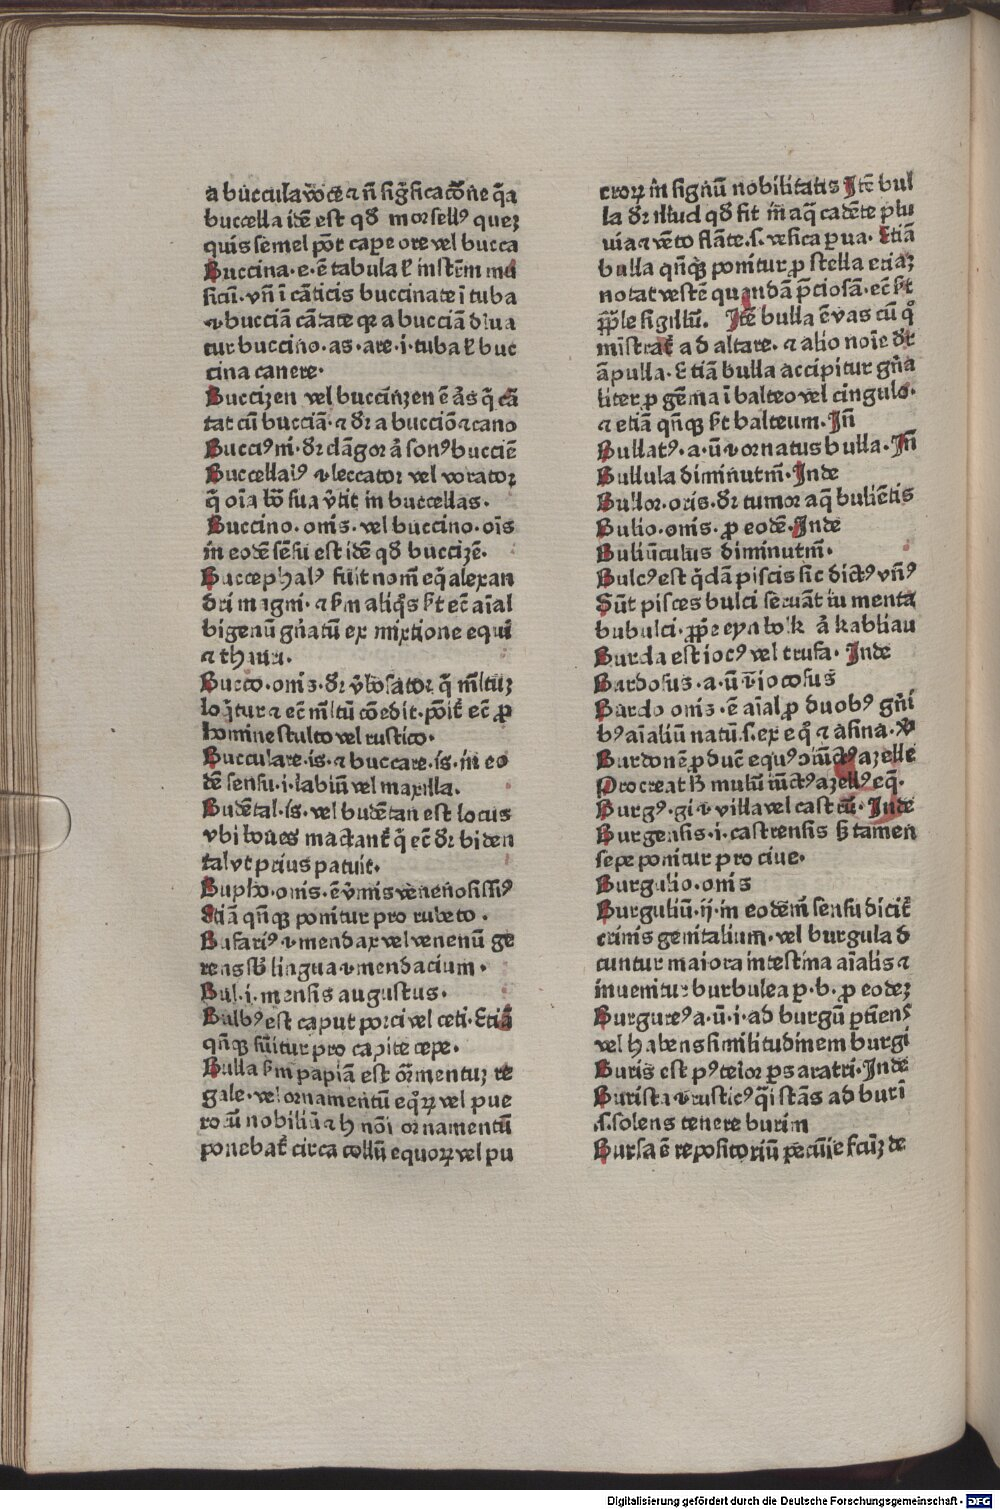 a buccula voce ⁊ n̄ sig̅ficac̅o̅ne q̅a
buccella idē est qđ morsellꝰ quez
quis semel pōt cape ore vel bucca
Buccina·e·ē tabula ł instēm mu
sicū·vn̄ ī cāticis buccinate ī tuba
⁊ bucciā cātate qꝛ a bucciā diua
tur buccino·as·are·i·tuba ł buc
cina canere·
Buccizen vel bucciñzen ē ās q̄ cā
tat cū bucciā·⁊ dr̄ a bucciō ⁊ cano
Bucciꝰ m̄·dr̄ clāgor ā sonꝰ bucciē
Buccellaiꝰ ⁊ leccator vel vorator
q̄ oīa bō sua v̄tit in buccellas·
Buccino·onis·vel buccino·oīs
in eodē sēsu est idē qđ buccizē·
Buccephalꝰ fuit nom̄ eq̄ alexan
dri magni·⁊ scdm aliq̄s sit ec̄ aīal
bigenū gn̄atū ex mixtione equi
⁊ thauri·
Bucco·onis·dr̄ v̄bosator q̄ m̄ltuz
loq̄tur ⁊ ec̄ m̄ltū cōedit·pōit̄ ec̄ ꝓ
homine stulto vel rustico·
Bucculare·is·⁊ buccare·is·in eo
dē sensu·i·labiū vel maxilla·
Budētal·is·vel budētan est locus
vbi boues mactant̄ q̄ ec̄ dr̄ biden
tal vt pcius patuit·
Bupho·onis·ē v̄mis venenosissiꝰ
Etiā qn̄qꝫ ponitur pro rubeto·
Bufariꝰ ⁊ mendax vel venenū ge
rens sb̄ lingua ⁊ mendacium·
Bul·i·mensis augustus·
Bulbꝰ est caput porci vel ceti·Etiā
qn̄qꝫ sūitur pro capite cepe·
Bulla scdm papiā est or̄mentuz re
gale·vel ornamentū eq̄ꝝ vel pue
roꝝ nobiliū ⁊ h nōi ornamentū
ponebat̄ circa collū equoꝝ vel pu
eroꝝ in signū nobilitatis Itē bul
la dr̄ illud qđ fit in aq̄ cadēte plu
uia ⁊ vēto flāte·s·vesica ꝑua·Etiā
bulla qn̄qꝫ ponitur ꝓ stella etiaz
notat vestē quandā p̄ciosā·ec̄ sit
ꝓp̄le sigillū. Itē bulla ē vas cū q̊
mīstrat̄ ad altare·⁊ alio noīe dr̄
āpulla·Etiā bulla accipitur gn̄a
liter ꝓ gēma ī balteo vel cingulo·
⁊ etiā qn̄qꝫ sit balteum·In̄
Bullatꝰ·a·ū ⁊ ornatus bulla·In̄
Bullula diminutm̄·Inde
Bullor·oris·dr̄ tumor aq̄ buliētis
Bulio·onis·ꝓ eodē·Inde
Buliūculus diminutm̄·
Bulcꝰ est q̄dā piscis sic dictꝰ vn̄ꝰ
Sūt pisces bulci seruāt iumenta
bubulci·ꝓp̄e eyn bolk ā kabliau
Burda est iocꝰ vel trufa·Inde
Bardosus·a·ū ⁊ iocosus
Bardo onis·ē aīal ꝓ duobꝰ gn̄i
bꝰ aīaliū natū·s·ex eq̊ ⁊ asina·Vꝰ
Burdonē ꝓduc̄ equꝰ iūctꝰ azelle
Procreat h̄ mulū iūctꝰ azellꝰ eq̄·
Burgꝰ·gi ⁊ villa vel castrū·Inde
Burgensis·i·castrensis sꝫ tamen
sepe ponitur pro ciue·
Burgulio·onis
Burguliū·ij·in eodem̄ sensu dicit̄
crinis genitalium·vel burgula d
cuntur maiora intestina aīalis ⁊
inuenitur burbulea p·b·ꝓ eodez
Burgureꝰ a·ū·i·ad burgū ꝑtienꝰ
vel habens similitudinem burgi
Buris est pꝰterior ꝑs aratri·Inde
Burista ⁊ rusticꝰ q̄i stās ad burī
·s·solens tenere burim
Bursa ē repositoriū pecūie fcūz de
Digitalisierung gefördert durch die Deutsche Forschungsgemeinschaft - DFG